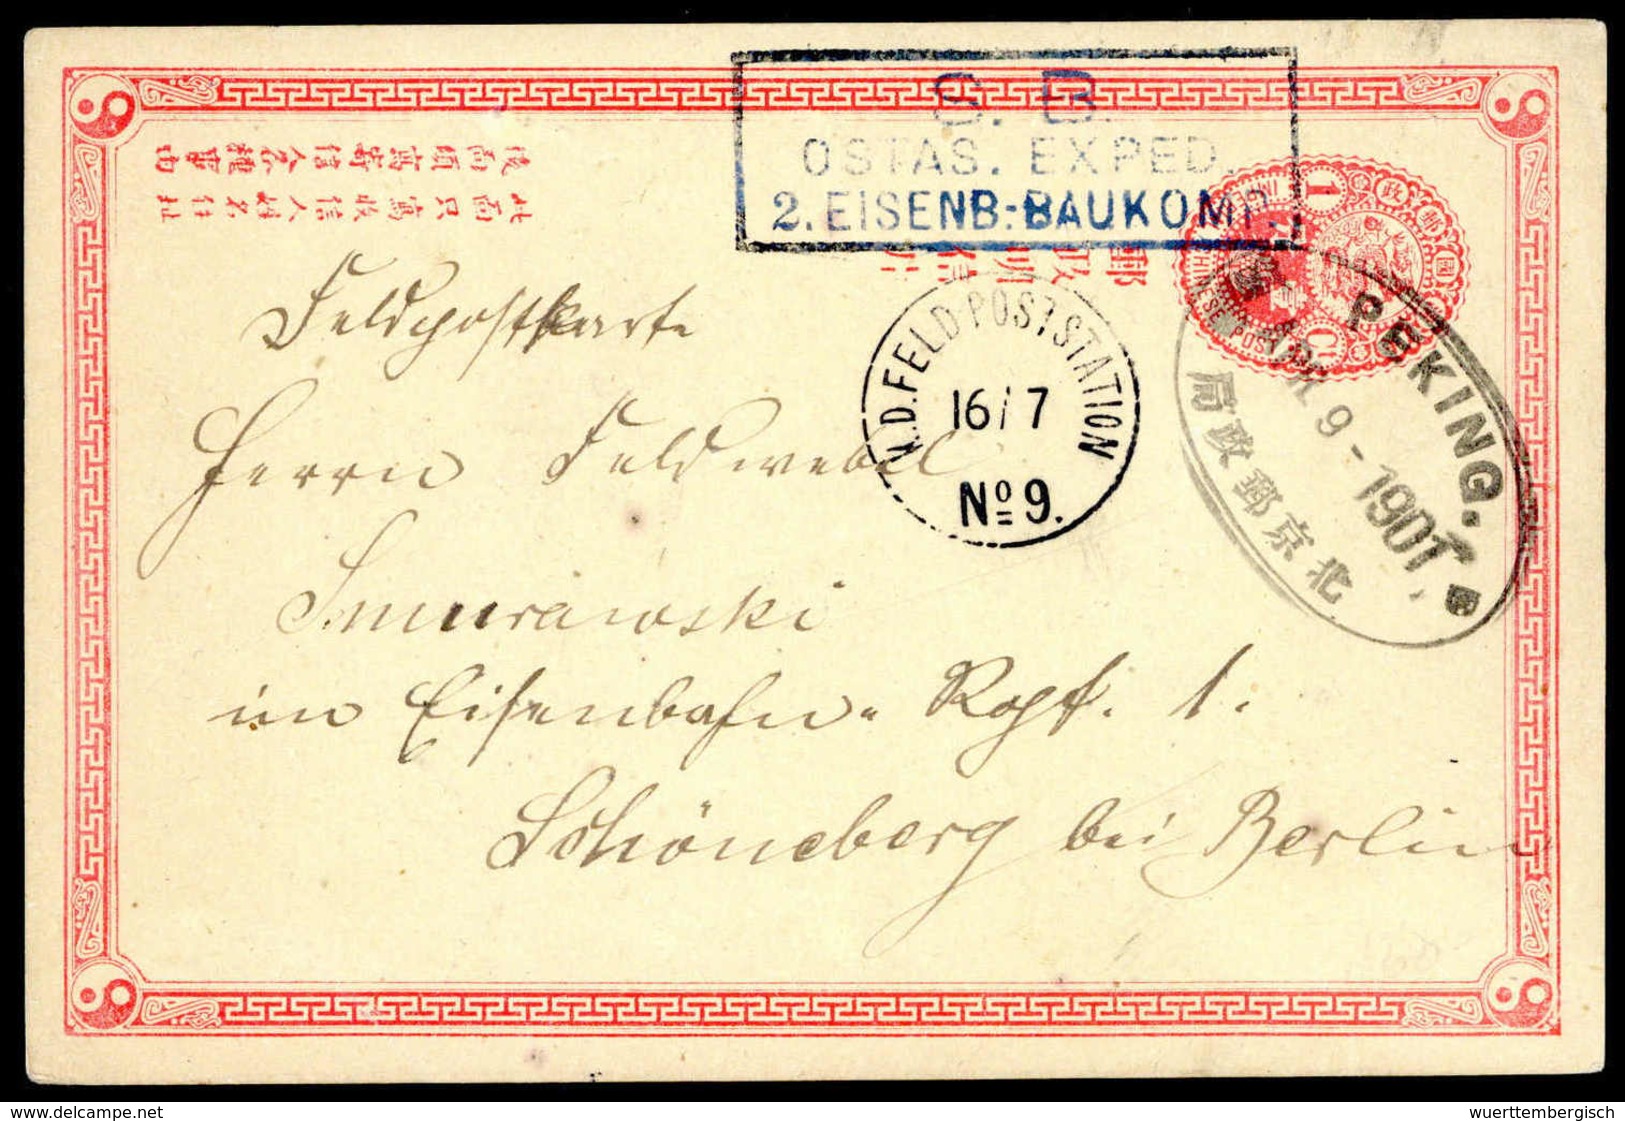 S. B.
OSTAS. EXPED.
2. EISENB:-BAUKOMP.
1
CHINESE POST
後面須寄信人名
此面只寫收信人姓名住址
K.D. FELD-POSTSTATION
16/7
No 9.
PEKING.
APR 9 - 1901.
北京郵政局
Feldpostkarte
Herrn Feldwebel
Smurawski
im Eisenbahn-Rgt. 1.
Schöneberg bei Berlin
www.delcampe.net
wuerttembergisch